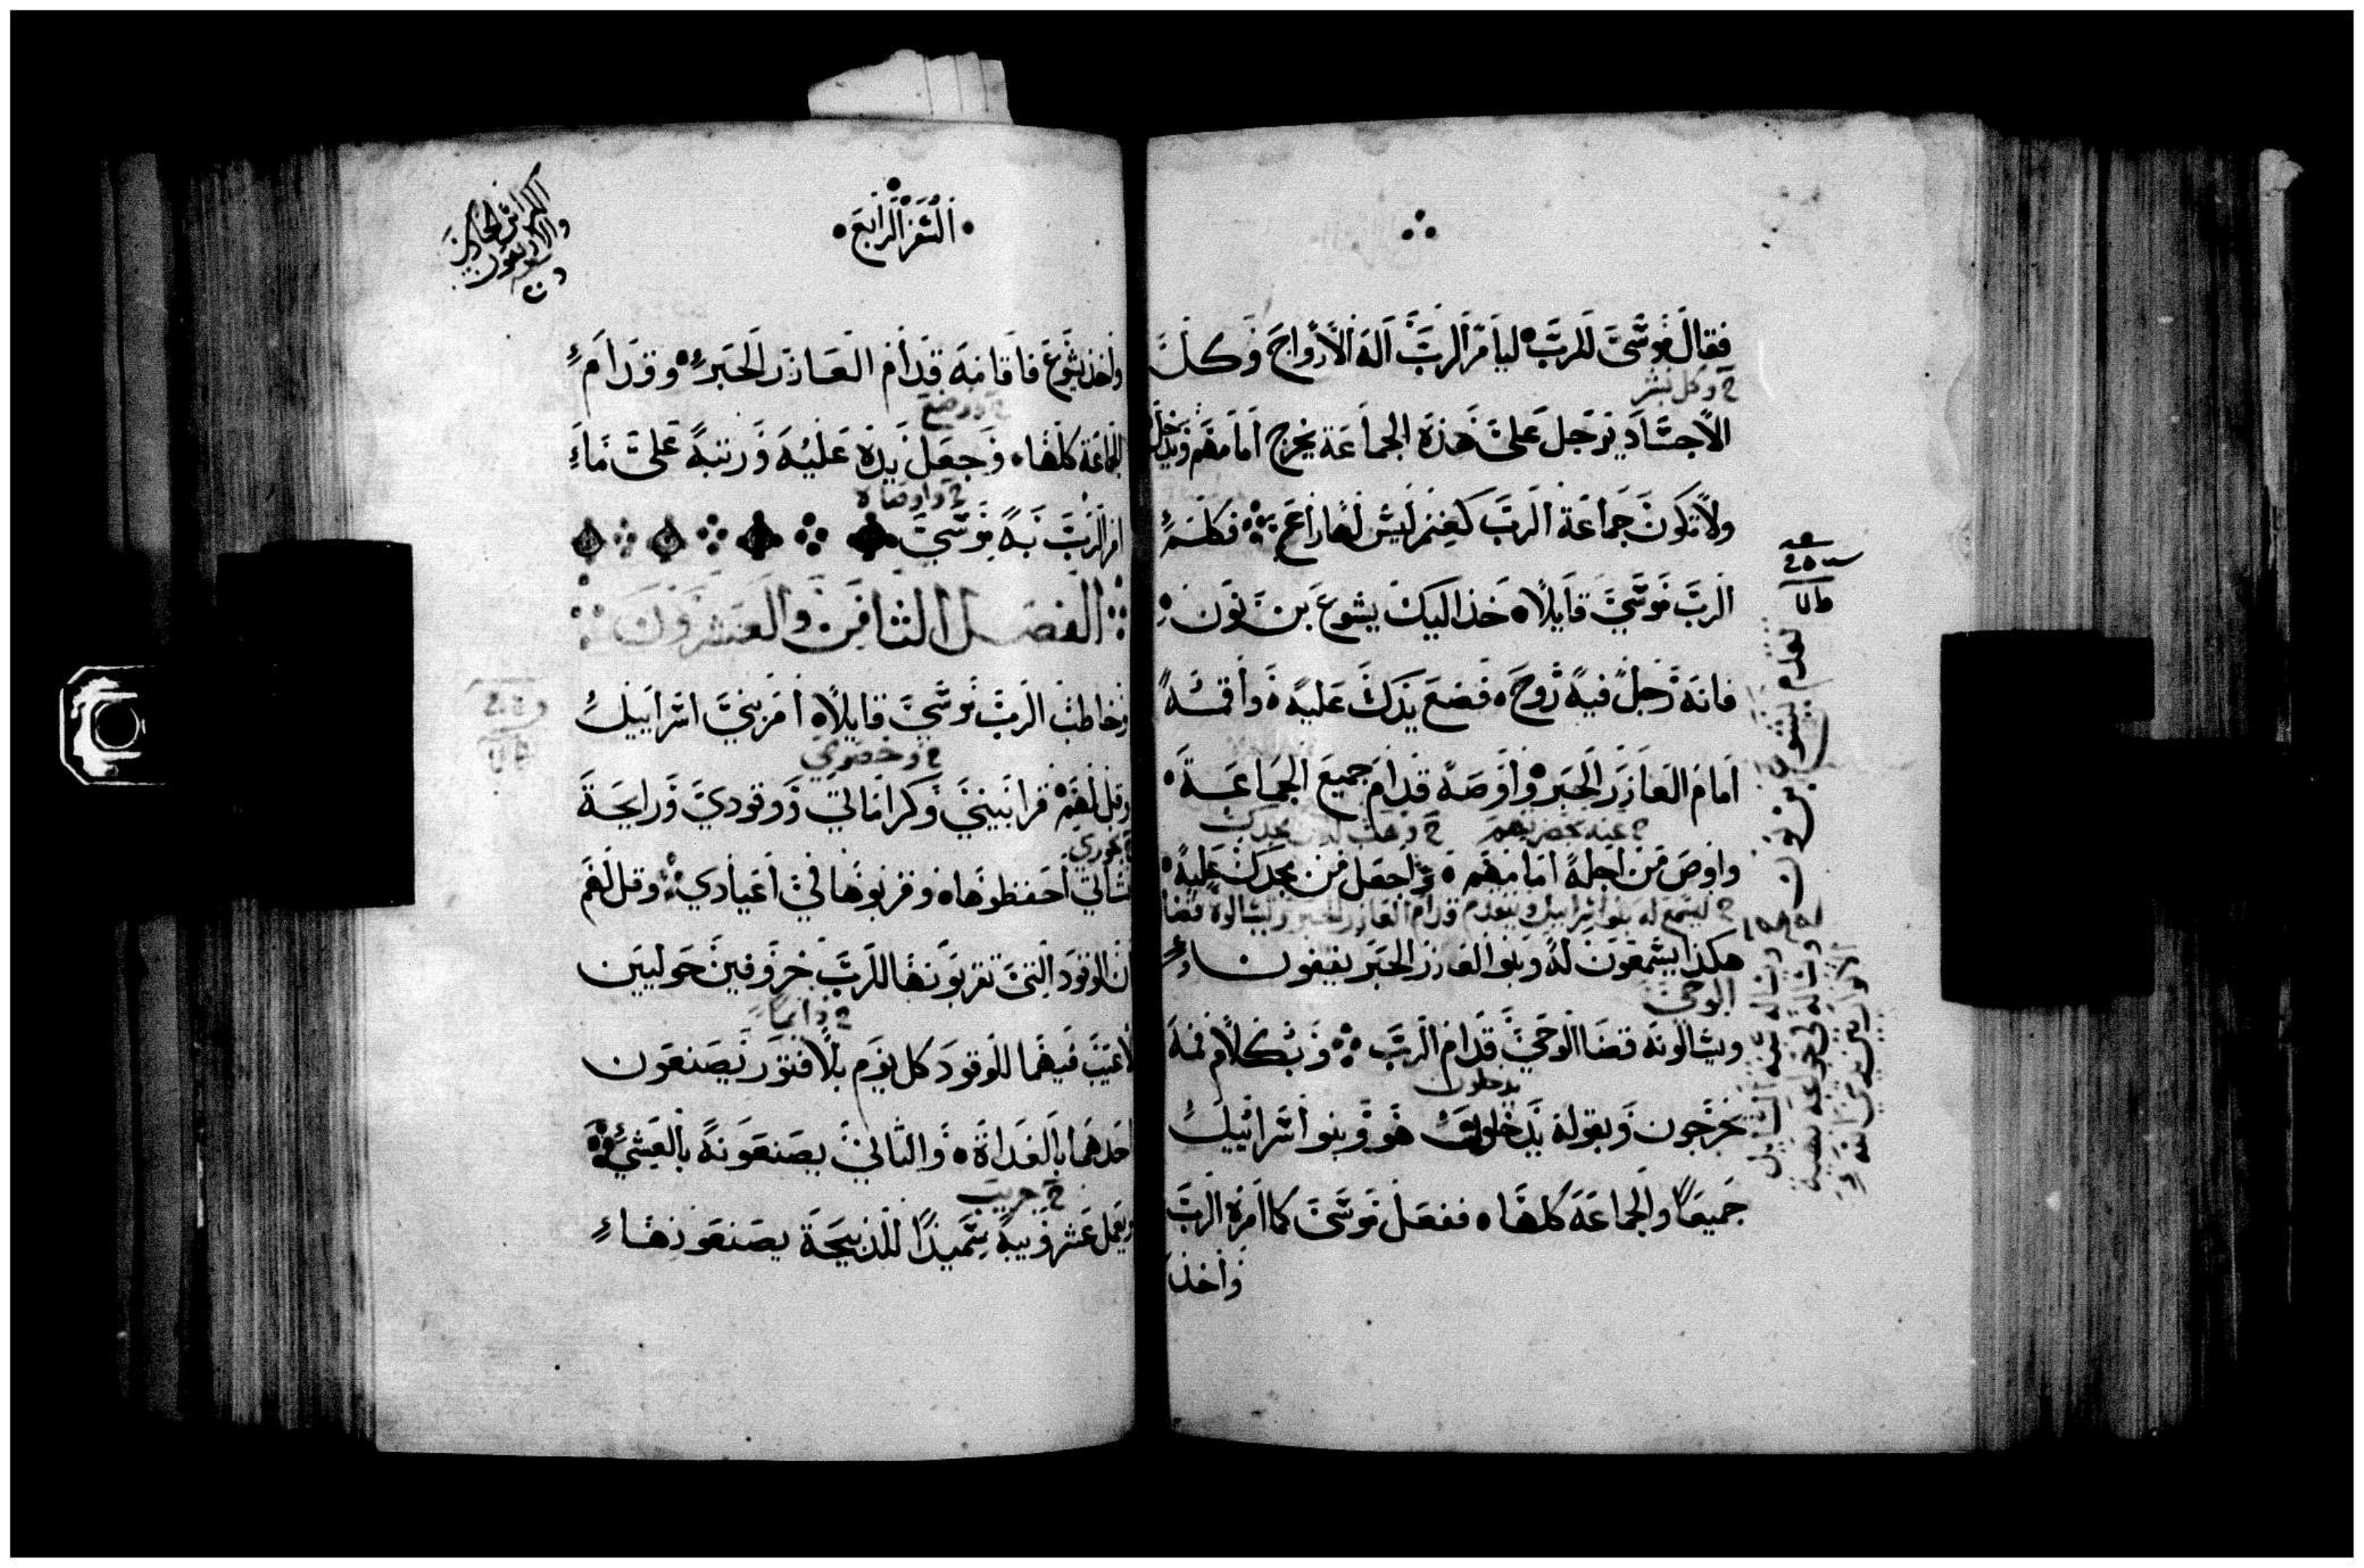 فقال موسى للرب ليامر الرب اله الارواح وكل
ح وكل بشر
الاجساد برجل على هذه الجماعة يخرج امامهم ويدخل
ولا تكون جماعة الرب كغنم ليس لها راعي فكلم
الرب موسى قايلا خذ اليك يشوع بن نون
فانه رجل فيه روح فضع يدك عليه واقمه
امام العازر الحبر واوصه قدام جميع الجماعة
واوص من اجله امامهم واجعل من مجدك عليه
ح ليسمع له بنو اسراييل ويتقدم قدام العازر الحبر ويسالوه قضا
هكذا يسمعون له وبنو العازر الحبر يقفون
الوحي
ويسالونه قضا الوحي قدام الرب وبكلام فمه
يدخلون
يخرجون وبقوله يدخلون هو وبنو اسراييل
جميعا والجماعة كلها ففعل موسى كما امره الرب
واخذ
السفر الرابع
واخذ يشوع فاقامه قدام العازر الحبر وقدام
ح ووضع
الجماعة كلها وجعل يده عليه ورتبه على ما
ح واوصاه
امر الرب به موسى
الفصل الثامن والعشرون
وخاطب الرب موسى قايلا امر بني اسراييل
وقل لهم قرابيني وكراماتي ووقودي ورايحة
احفظوها وقربوها في اعيادي وقل لهم
ان الوقود التي تقربونها للرب خروفين حوليين
ح دايما
لا عيب فيهما للوقود كل يوم بلا فتور تصنعون
احدهما بالغداة والثاني يصنعونه بالعشي
ح جريب
ويعمل عشر ويبة سميدا للذبيحة يصنعونها